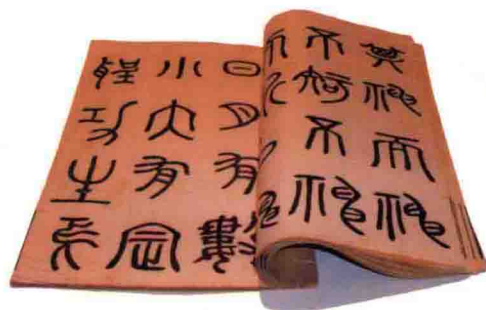 其神而神
不知不神
而
日月有數
小大有定
聖功生焉